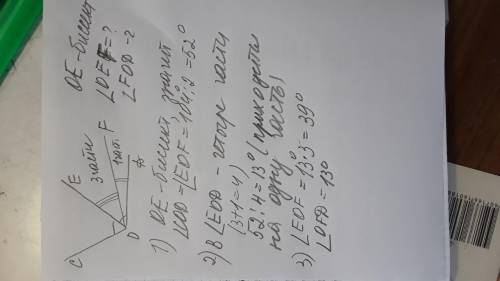 C
E
3 части
F
1 част.
D
DE-биссект
∠DEF=?
∠FOD=?
1) DE-биссект значит
∠COD=∠EOF=104:2=52°
2) В ∠EOD - четыре части
(3+1=4)
52:4=13° (приходится
на одну часть)
3) ∠EOF=13·3=39°
∠OFD=13°